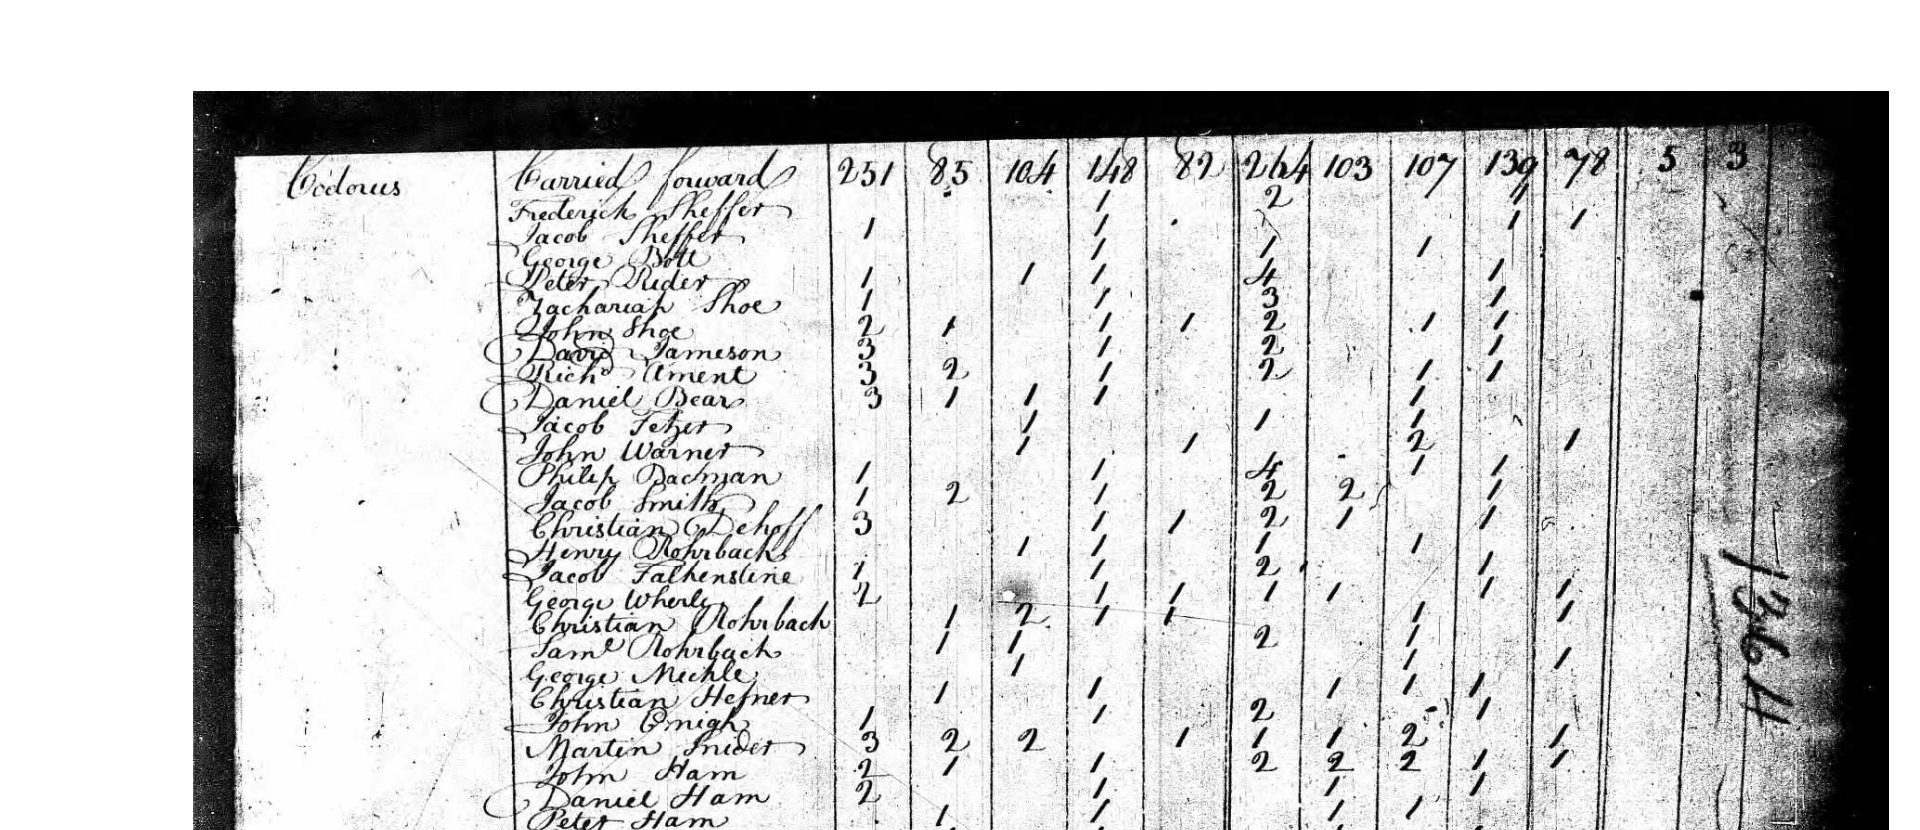 Codorus Carried forward 251 85 104 148 82 264 103 107 139 78 5 3
Frederick Sheffer 1 2 1
Jacob Sheffer 1 1 1 1
George Bott 1 1 1
Peter Rider 1 1 1 4 1
Zachariah Shoe 1 1 3 1
John Shoe 2 1 1 1 2 1 1
David Jameson 3 1 2 1
Richd Ament 3 2 1 2 1 1
Daniel Bear 3 1 1 1 1
Jacob Fetzer 1 1 1
John Warner 1 1 2 1
Philip Bachman 1 1 4 1 1
Jacob Smith 1 2 1 2 2 1
Christian Dehoff 3 1 1 2 1 1
Henry Rohrbach 1 1 1 1
Jacob Falkenstine 1 1 2 1
George Wherly 2 1 1 1 1 1 1
Christian Rohrbach 1 2 1 1 1 1
Saml Rohrbach 1 1 2 1
George Michle 1 1 1
Christian Hefner 1 1 1 1 1
John Emigh 1 1 2 1
Martin Snider 3 2 2 1 1 1 2 1
John Ham 2 1 1 2 2 2 1 1
Daniel Ham 2 1 1 1
Peter Ham 1 1 1 1